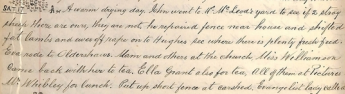 SAT. A warm drying day. John went to W. McLeods yard to see if 2 stray
sheep there are ours, they are not he repaired fence near house and shifted
fat lambs and ewes off rape on to Hughes see where there is plenty fresh feed.
Eva rode to Aldershaws. Mam and others at the church. Miss Williamson
Came back with her to tea. Ella Grant also for tea. All of them at Pictures
Mr Whibley for lunch. Put up shed fence at carshed. Evangelist lady called